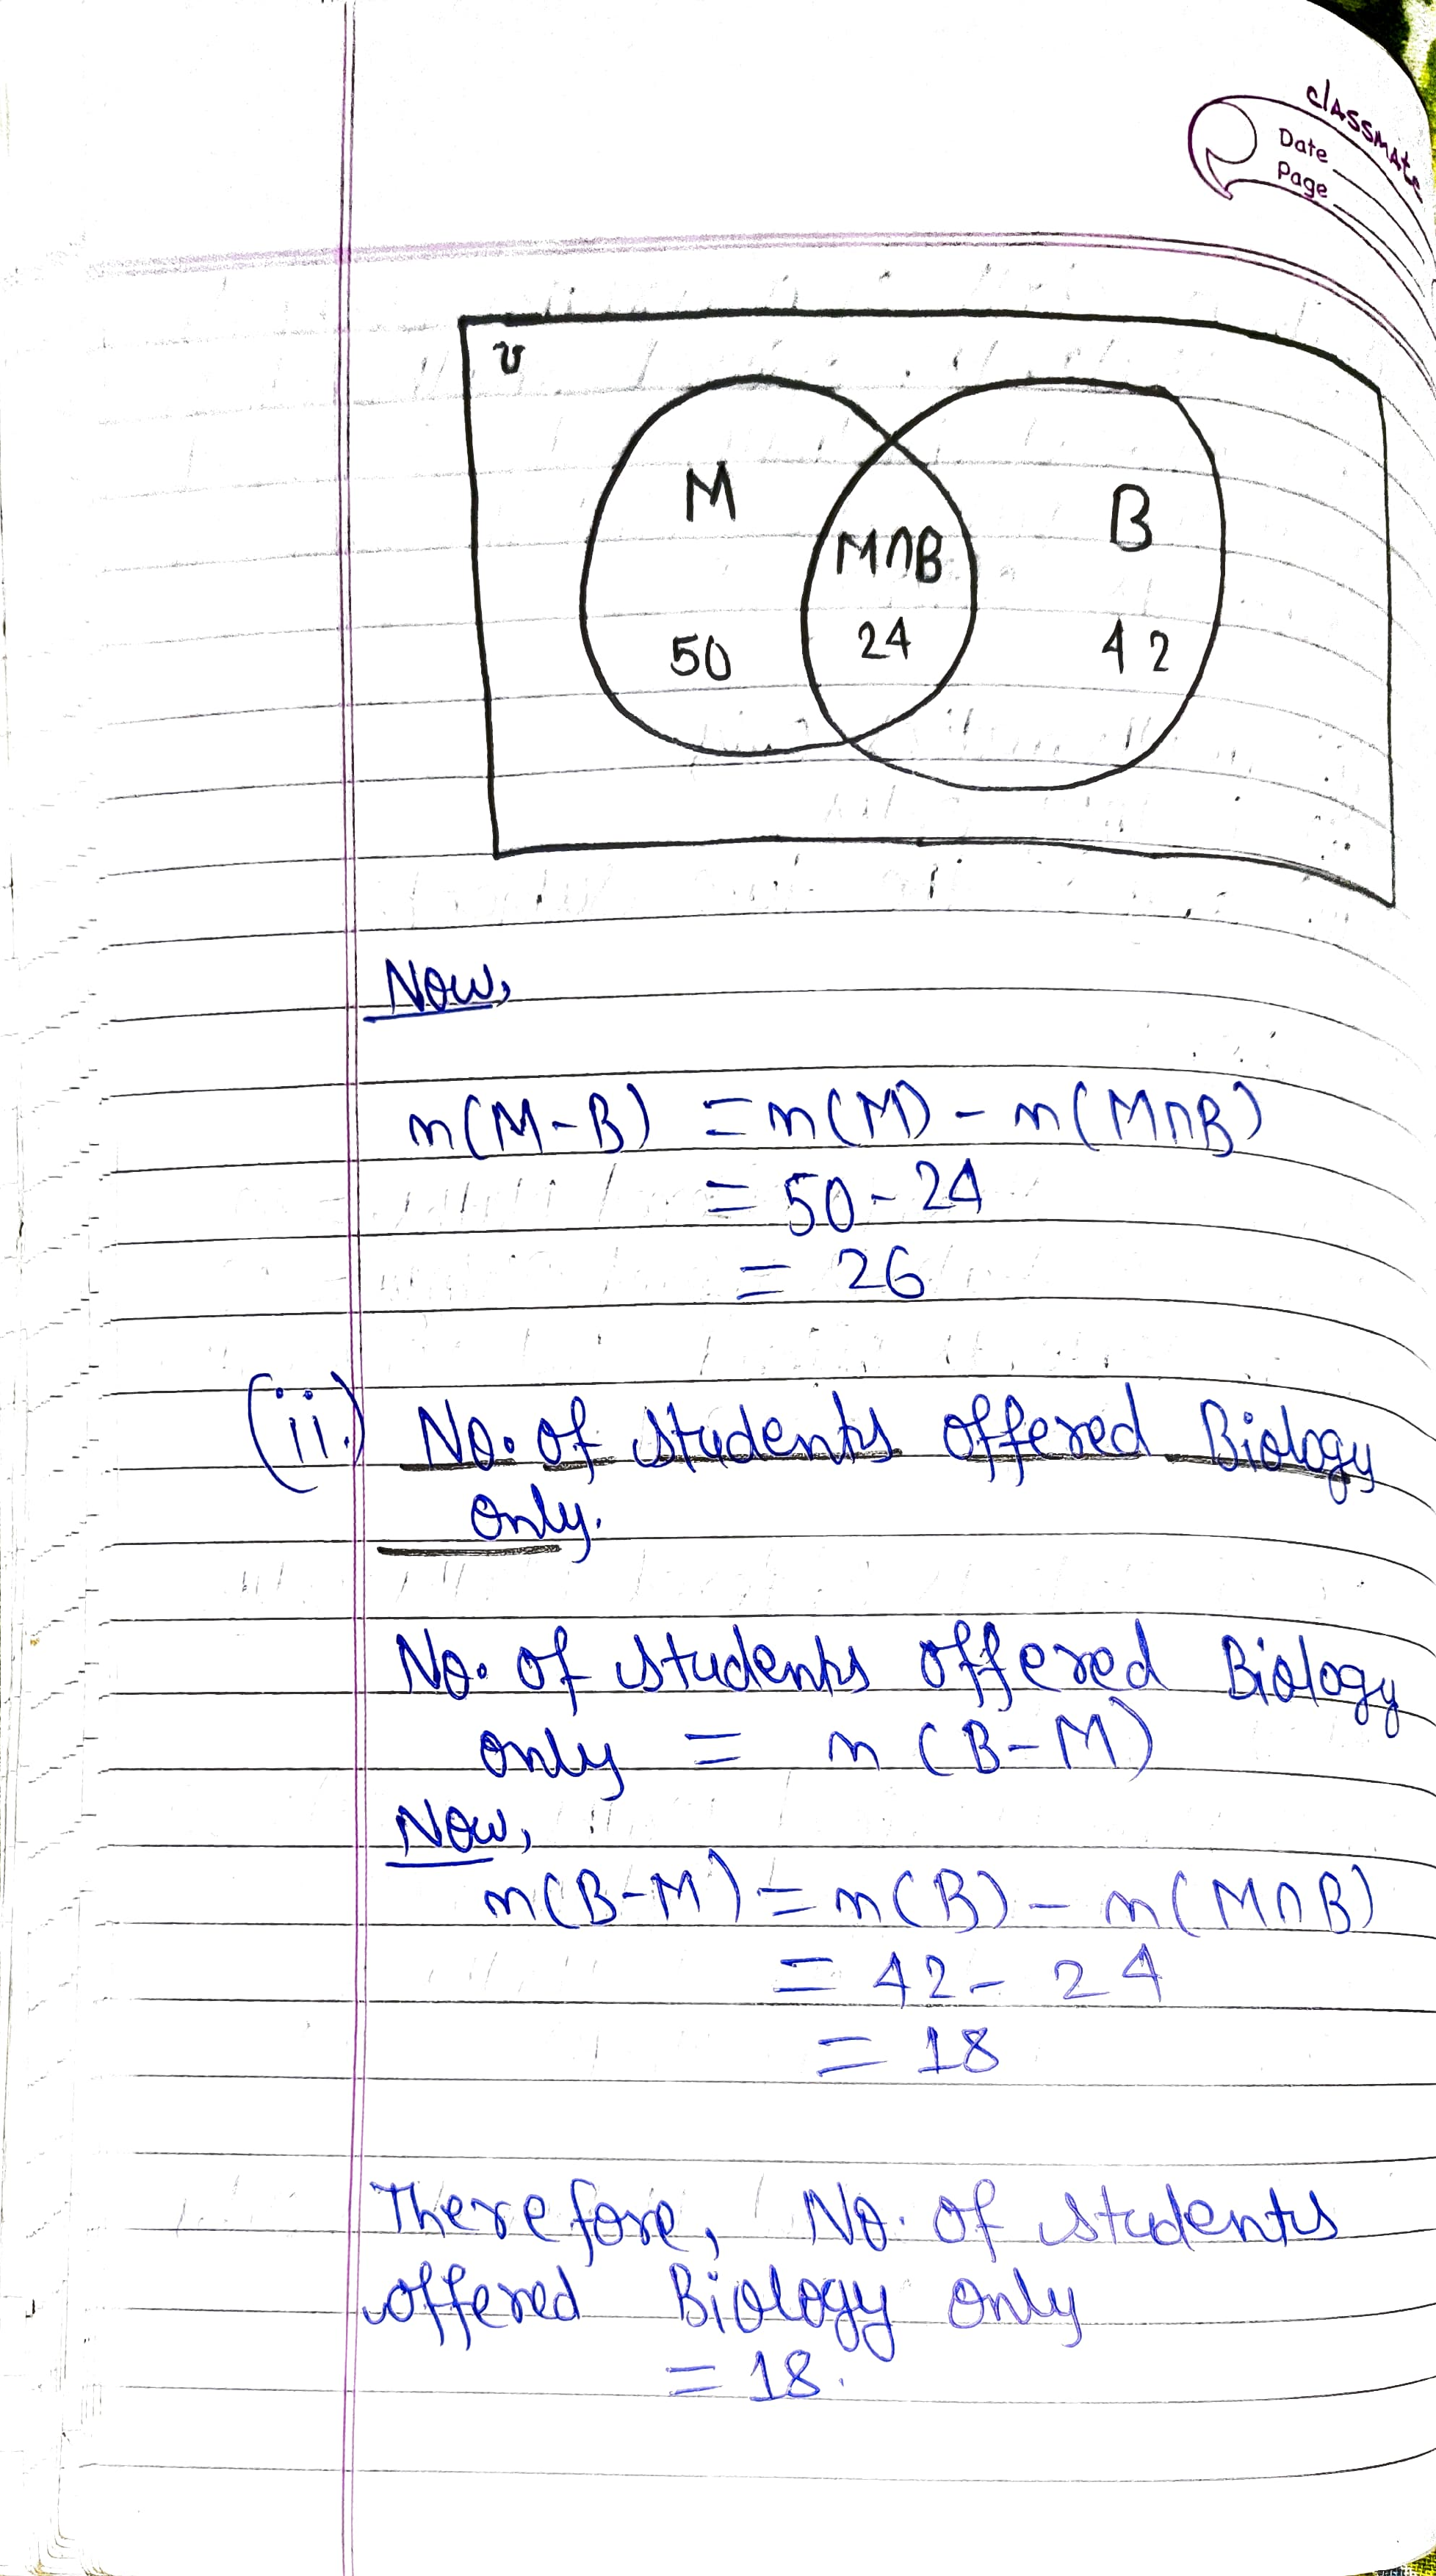 classmate
Date
Page
U
M
B
M∩B
50
24
42
Now,
n(M-B) = n(M) - n(M∩B)
= 50 - 24
= 26
(ii.) No. of students offered Biology
only.
No. of students offered Biology
only = n (B-M)
Now,
n(B-M) = n(B) - n(M∩B)
= 42 - 24
= 18
Therefore, No. of students
offered Biology only
= 18.